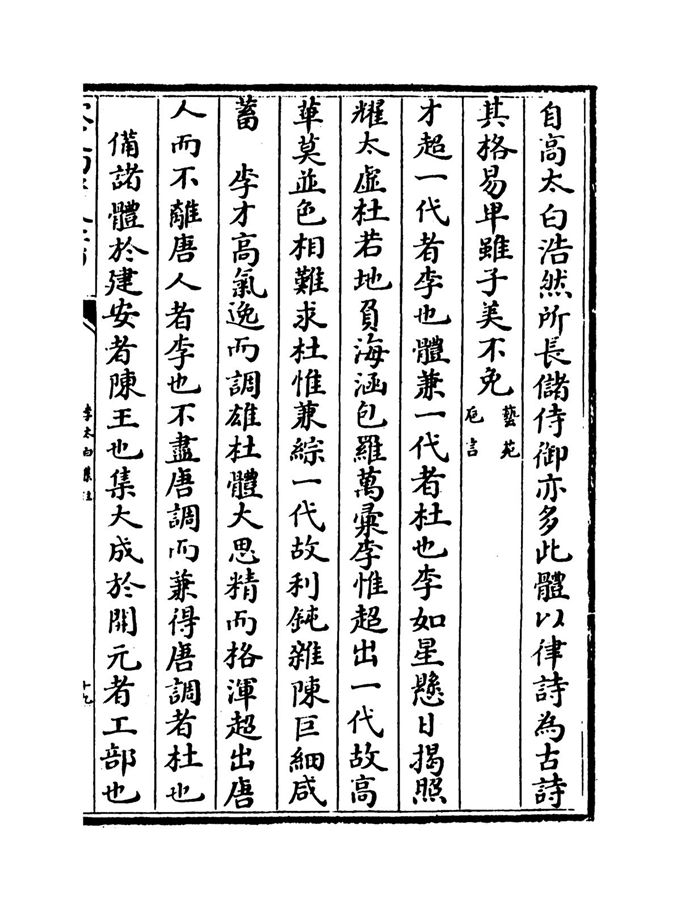 自高太白浩然所長儲侍御亦多此體以律詩為古詩
其格易卑雖子美不免藝苑巵言
才超一代者李也體兼一代者杜也李如星懸日揭照
耀太虛杜若地負海涵包羅萬彙李惟超出一代故高
華莫並色相難求杜惟兼綜一代故利鈍雜陳巨細咸
蓄　李才髙氣逸而調雄杜體大思精而格渾超出唐
人而不離唐人者李也不盡唐調而兼得唐調者杜也
備諸體於建安者陳王也集大成於開元者工部也
李太白集注
十九